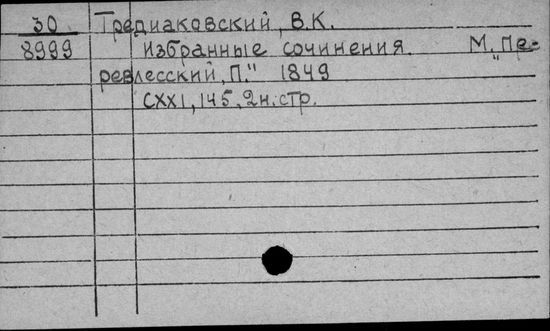 30 Тредиаковский, В.К.
8999 Избранные сочинения. М. „Пе-
ревлесский, П." 1849
CXXI, 145, 2 н. стр.